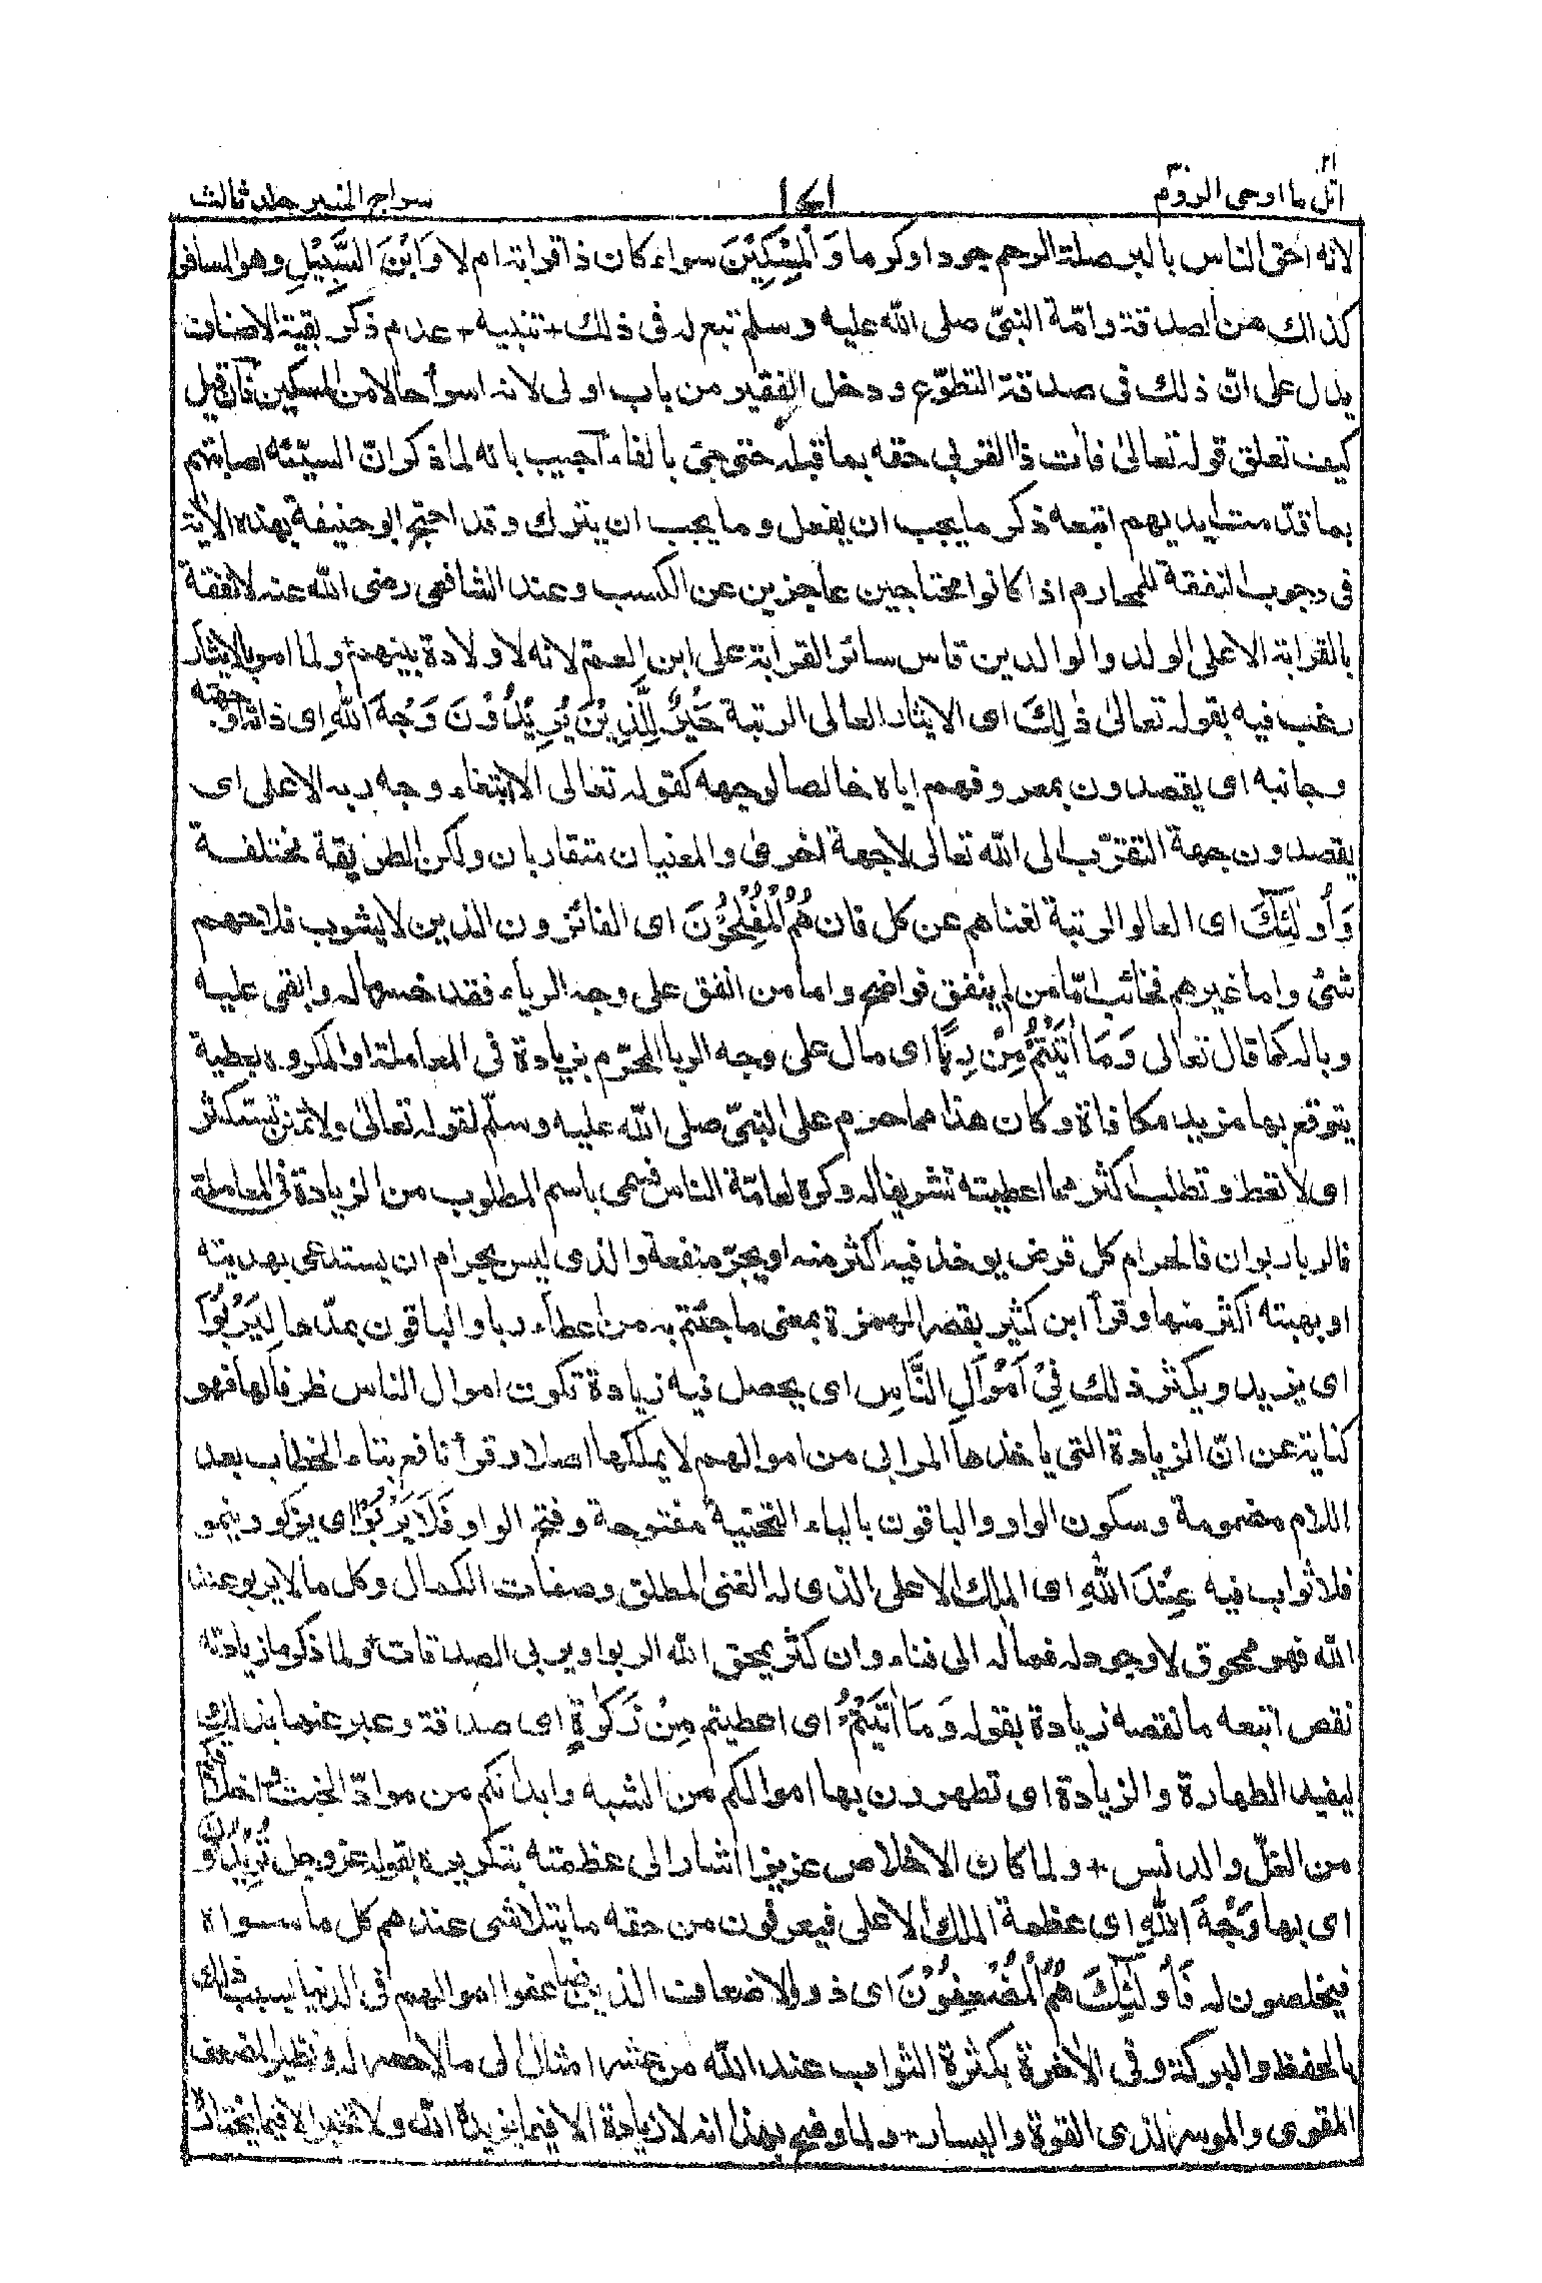 اتل ما اوحى ٢١ الروم ٣٠
١٧١
سراج المنير جلد ثالث
لانه احق الناس بالبر صلة الرحم جودا وكرما وَالْمِسْكِيْنَ سواء كان ذا قرابة ام لا وَابْنَ السَّبِيْلِ وهو المسافر
كذالك من الصدقة وامّة النبىّ صلى الله عليه وسلم تبع له فى ذلك + تنبيه + عدم ذكر بقية الاصناف
يدل على انّ ذلك فى صدقة التطوّع ودخل الفقير من باب اولى لانه اسوأ حالا من المسكين فان قيل
كيف تعلق قوله تعالىٰ فاٰت ذا القربى حقه بما قبله حتى جئ بالفاء اجيب بانه لما ذكر انّ السيّئة اصابتهم
بما قدّمت ايديهم اتبعه ذكر ما يجب ان يفعل وما يجب ان يترك وقد احتج ابو حنيفة بهذه الاٰية
فى وجوب النفقة للمحارم اذا كانوا محتاجين عاجزين عن الكسب وعند الشافعى رضى الله عنه لا نفقة
بالقرابة الا على الولد والوالدين قاس سائر القرابة على ابن العمّ لانه لا ولادة بينهم + ولما امر بالايثار
رغب فيه بقوله تعالىٰ ذٰلِكَ اى الايثار العالى الرتبة خَيْرٌ لِّلَّذِيْنَ يُرِيْدُوْنَ وَجْهَ اللّٰهِ اى ذاته او جهته
وجانبه اى يقصدون بمعروفهم اياه خالصا لوجهه كقوله تعالى الا ابتغاء وجه ربه الاعلى اى
يقصدون جهة التقرّب الى الله تعالى لا جهة اخرى والمعنيان متقاربان ولكن الطريقة مختلفة
وَاُولٰٓئِكَ اى العالو الرتبة لغناهم عن كل فان هُمُ الْمُفْلِحُوْنَ اى الفائزون الذين لا يشوب فلاحهم
شئ واما غيرهم فخائب امّا من لم ينفق فواضح واما من انفق على وجه الرياء فقد خسر ماله وابقى عليه
وباله كما قال تعالى وَمَا اٰتَيْتُمْ مِّنْ رِّبًا اى مال على وجه الربا المحرّم بزيادة فى المعاملة او المكروه بعطية
يتوقع بها مزيد مكافاة وكان هذا مما حرم على النبىّ صلى الله عليه وسلّم لقوله تعالىٰ ولا تمنن تستكثر
اى لا تعط وتطلب اكثر مما اعطيته تشريفا له وكره لعامّة الناس فسمى باسم المطلوب من الزيادة فى المعاملة
فالربا ربوان فالحرام كل قرض يوخذ فيه اكثر منه او يجرّ منفعة والذى ليس بحرام ان يستدعى بهديته
او بهبته اكثر منها وقرأ ابن كثير بقصر الهمزة بمعنى ما جئتم به من اعطاء ربا والباقون بمدّها لِيَرْبُوَا۟
اى يزيد ويكثر ذلك فِىْٓ اَمْوَالِ النَّاسِ اى يحصل فيه زيادة تكون اموال الناس ظرفا لها فهو
كناية عن انّ الزيادة التى ياخذها المرابى من اموالهم لا يملكها اصلا وقرأ نافع بتاء الخطاب بعد
اللام مضمومة وسكون الواو والباقون بالياء التحتية مفتوحة وفتح الواو فَلَا يَرْبُوْا اى يزكو وينمو
فلا ثواب فيه عِنْدَ اللّٰهِ اى الملك الاعلى الذى له الغنى المطلق وصفات الكمال وكل ما لا يربو عند
الله فهو ممحوق لا وجود له فماٰله الى فناء وان كثر يمحق الله الربوا ويربى الصدقات + ولما ذكر ما زيادته
نقص اتبعه ما نقصه زيادة بقوله وَمَا اٰتَيْتُمْ اى اعطيتم مِّنْ زَكٰوةٍ اى صدقة وعبر عنها بذلك
ليفيد الطهارة والزيادة اى تطهرون بها اموالكم من الشبه وابدانكم من موادّ الخبث واخلاقكم
من الغلّ والدنس + ولما كان الاخلاص عزيزا اشار الى عظمته بتكريره بقوله عزوجل تُرِيْدُوْنَ
اى بها وَجْهَ اللّٰهِ اى عظمة الملك الاعلى فيعرفون من حقه ما يتلاشى عندهم كل ما سواه
فيخلصون له فَاُولٰٓئِكَ هُمُ الْمُضْعِفُوْنَ اى ذوو الاضعاف الذين ضاعفوا اموالهم فى الدنيا بسبب ذلك
بالحفظ والبركة وفى الاٰخرة بكثرة الثواب عند الله من عشر امثال الى ما لا حصر له ونظير المضعف
المقوى والموسر لذى القوة واليسار + ولما وضح بهذا انه لا زيادة الا فيما يزيده الله ولا خير الا فيما يختاره